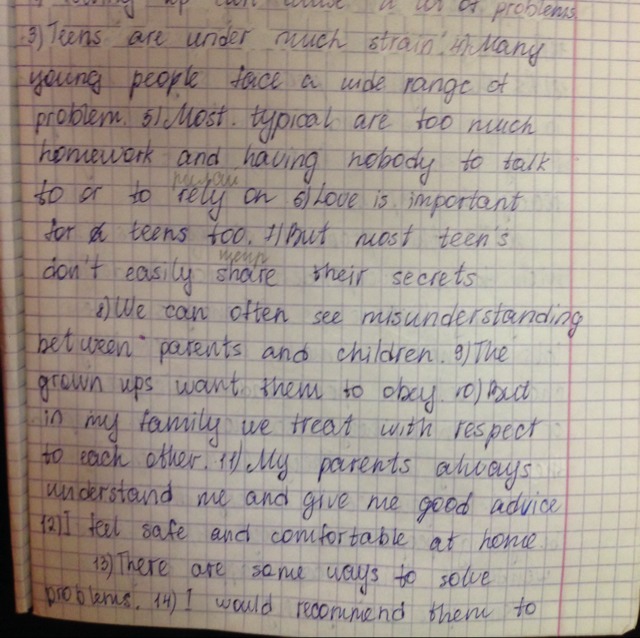 up can cause a lot of problems.
3) Teens are under much strain. 4) Many
young people face a wide range of
problem. 5) Most. typical are too much
homework and having nobody to talk
to or to rely on 6) Love is important
for teens too. 7) But most teen's
don't easily share their secrets
8) We can often see misunderstanding
between parents and children. 9) The
grown ups want them to obey. 10) But
in my family we treat with respect
to each other. 11) My parents always
understand me and give me good advice
12) I feel safe and comfortable at home
13) There are some ways to solve
problems. 14) I would recommend them to